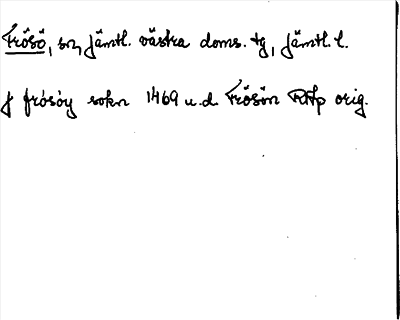 Frösö, sn, Jämtl. västra doms. tg, Jämtl. l.
j frósóy sokn 1469 u.d. Frösön RAp orig.